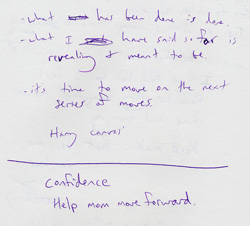 - what has been done is done.
- what I have said so far is
revealing & meant to be.
- it's time to move on the next
series of moves.
Confidence
Help mom move forward.